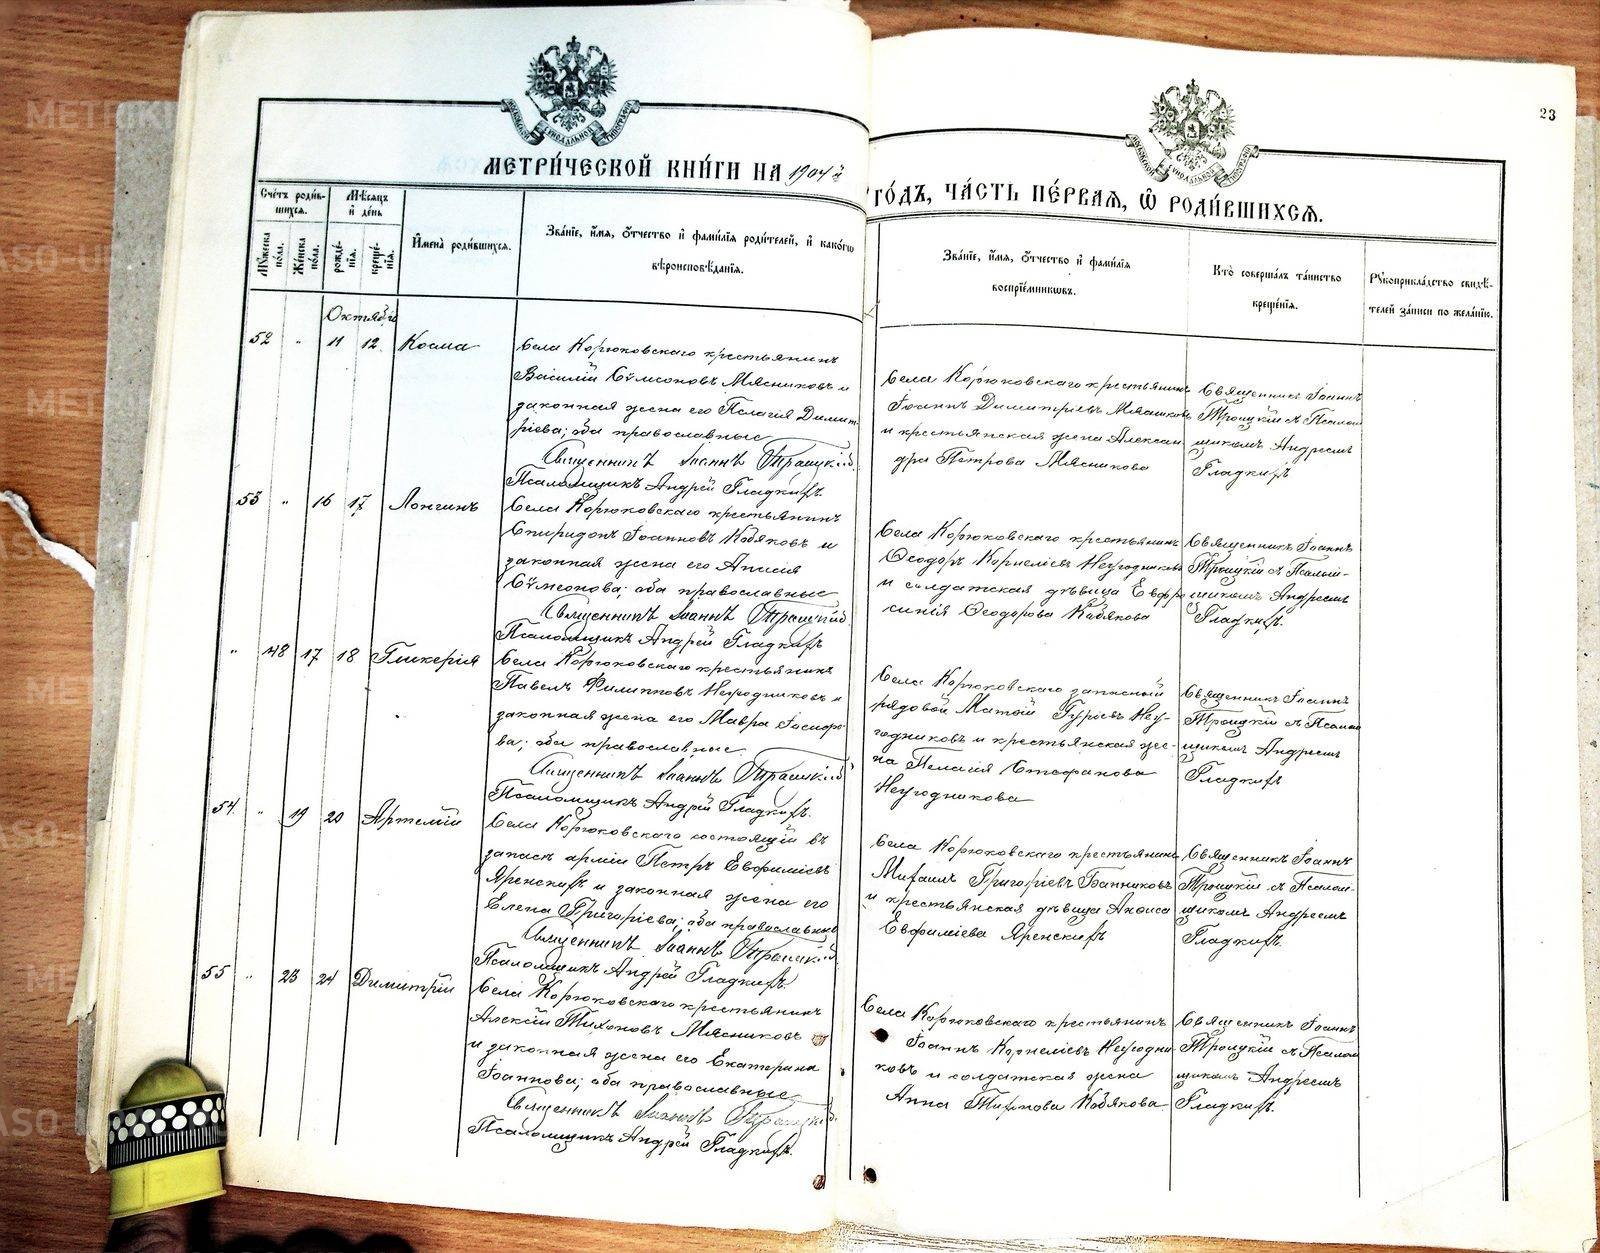 23
МЕТРИ́ЧЕСКОЙ КНИ́ГИ НА 1904 й
ГО́ДЪ, ЧА́СТЬ ПЕ́РВАЯ, Ѿ РОДИ́ВШИХСЯ.
Счетъ роди́в-
шихся.
Мѣсяцъ
и день
Мужеска
пола.
Женска
пола.
рожде-
нія.
креще-
нія.
Имена роди́вшихся.
Зва́ніе, и́мя, о́тчество и фами́лія роди́телей, и како́гω
вѣроисповѣданія.
Зва́ніе, и́мя, о́тчество и фами́лія
воспріе́мниковъ.
Кто̀ соверша́лъ та́инство
креще́нія.
Рукоприкла́дство свидѣ-
телей за́писи по жела́нію.
Октября
52 " 11 12 Косма
Села Корюковскаго крестьянинъ
Василій Сѵмеоновъ Мясниковъ и
законная жена его Пелагія Димит-
ріева; оба православные
Священникъ Іоаннъ Троицкій
Псаломщикъ Андрей Гладкихъ.
Села Корюковскаго крестьянинъ
Іоаннъ Димитріевъ Мясниковъ
и крестьянская жена Алексан-
дра Петрова Мясникова
Священникъ Іоаннъ
Троицкій съ Псалом
щикомъ Андреемъ
Гладкихъ
53 " 16 17 Лонгинъ
Села Корюковскаго крестьянинъ
Спиридонъ Іоанновъ Кобяковъ и
законная жена его Анисія
Сѵмеонова; оба православные
Священникъ Іоаннъ Троицкій
Псаломщикъ Андрей Гладкихъ
Села Корюковскаго крестьянинъ
Ѳеодоръ Корнеліевъ Негодниковъ
и солдатская дѣвица Евфро
синія Ѳеодорова Кобякова
Священникъ Іоаннъ
Троицкій съ Псалом-
щикомъ Андреемъ
Гладкихъ.
" 48 17 18 Гликерія
Села Корюковскаго крестьянинъ
Павелъ Филипповъ Негодниковъ и
законная жена его Мавра Іосифо-
ва; оба православные
Священникъ Іоаннъ Троицкій
Псаломщикъ Андрей Гладкихъ.
Села Корюковскаго запасный
рядовой Матѳій Гуріевъ Него-
годниковъ и крестьянская же-
на Пелагія Стефанова
Негодникова
Священникъ Іоаннъ
Троицкій съ Псалом
щикомъ Андреемъ
Гладкихъ
54 " 19 20 Артемій
Села Корюковскаго состоящій въ
запасѣ арміи Петръ Евфиміевъ
Яренскихъ и законная жена его
Елена Григоріева; оба православные
Священникъ Іоаннъ Троицкій
Псаломщикъ Андрей Гладкихъ.
Села Корюковскаго крестьянинъ
Михаилъ Григоріевъ Банниковъ
и крестьянская дѣвица Анфиса
Евфиміева Яренскихъ
Священникъ Іоаннъ
Троицкій съ Псалом-
щикомъ Андреемъ
Гладкихъ.
55 " 23 24 Димитрій
Села Корюковскаго крестьянинъ
Алексій Тихоновъ Мясниковъ
и законная жена его Екатерина
Іоаннова; оба православные
Священникъ Іоаннъ Троицкій
Псаломщикъ Андрей Гладкихъ.
Села Корюковскаго крестьянинъ
Іоаннъ Корнеліевъ Негодни
ковъ и солдатская жена
Анна Тихонова Кобякова
Священникъ Іоаннъ
Троицкій съ Псалом
щикомъ Андреемъ
Гладкихъ.